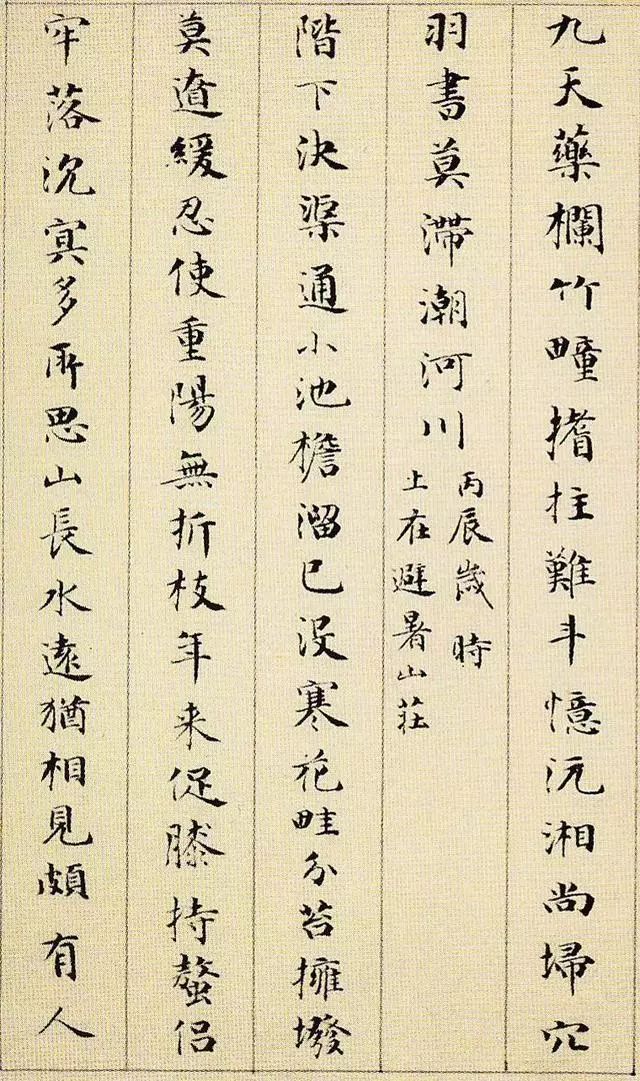 九天藥欄竹畽揩拄難斗憶沅湘尚埽穴
羽書莫滯潮河川
丙辰歲時
上在避暑山莊
階下決渠通小池檐溜已沒寒花畦分苔擁墢
莫道緩忍使重陽無折枝年来促膝持螯侶
牢落沉冥多所思山長水遠猶相見頗有人